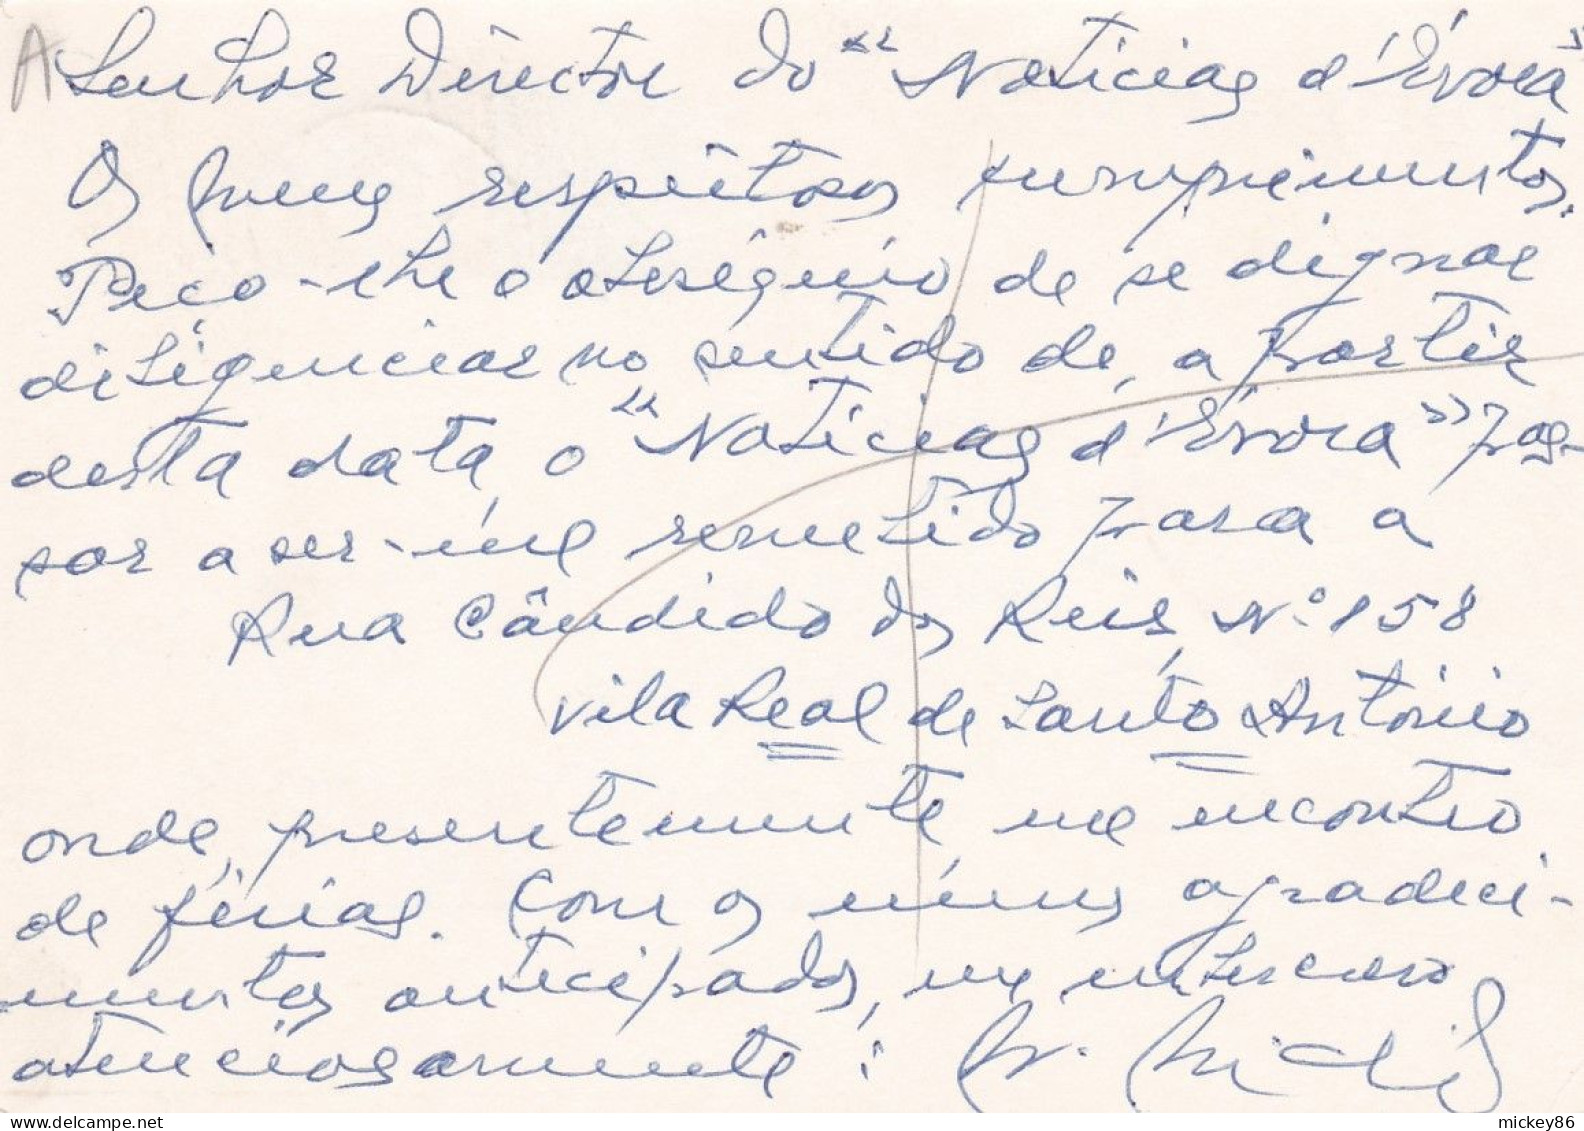 A Senhor Director do "Noticias d'Évora"
Os meus respeitosos cumprimentos.
Peço-lhe o obséquio de se dignar
diligenciar no sentido de, a partir
desta data, o "Noticias d'Évora" pas-
sar a ser-me remetido para a
Rua Cândido dos Reis, Nº 158
Vila Real de Santo António
onde, presentemente, me encontro
de férias. Com os meus agradeci-
mentos antecipados, me subscrevo
atenciosamente:
mickey86